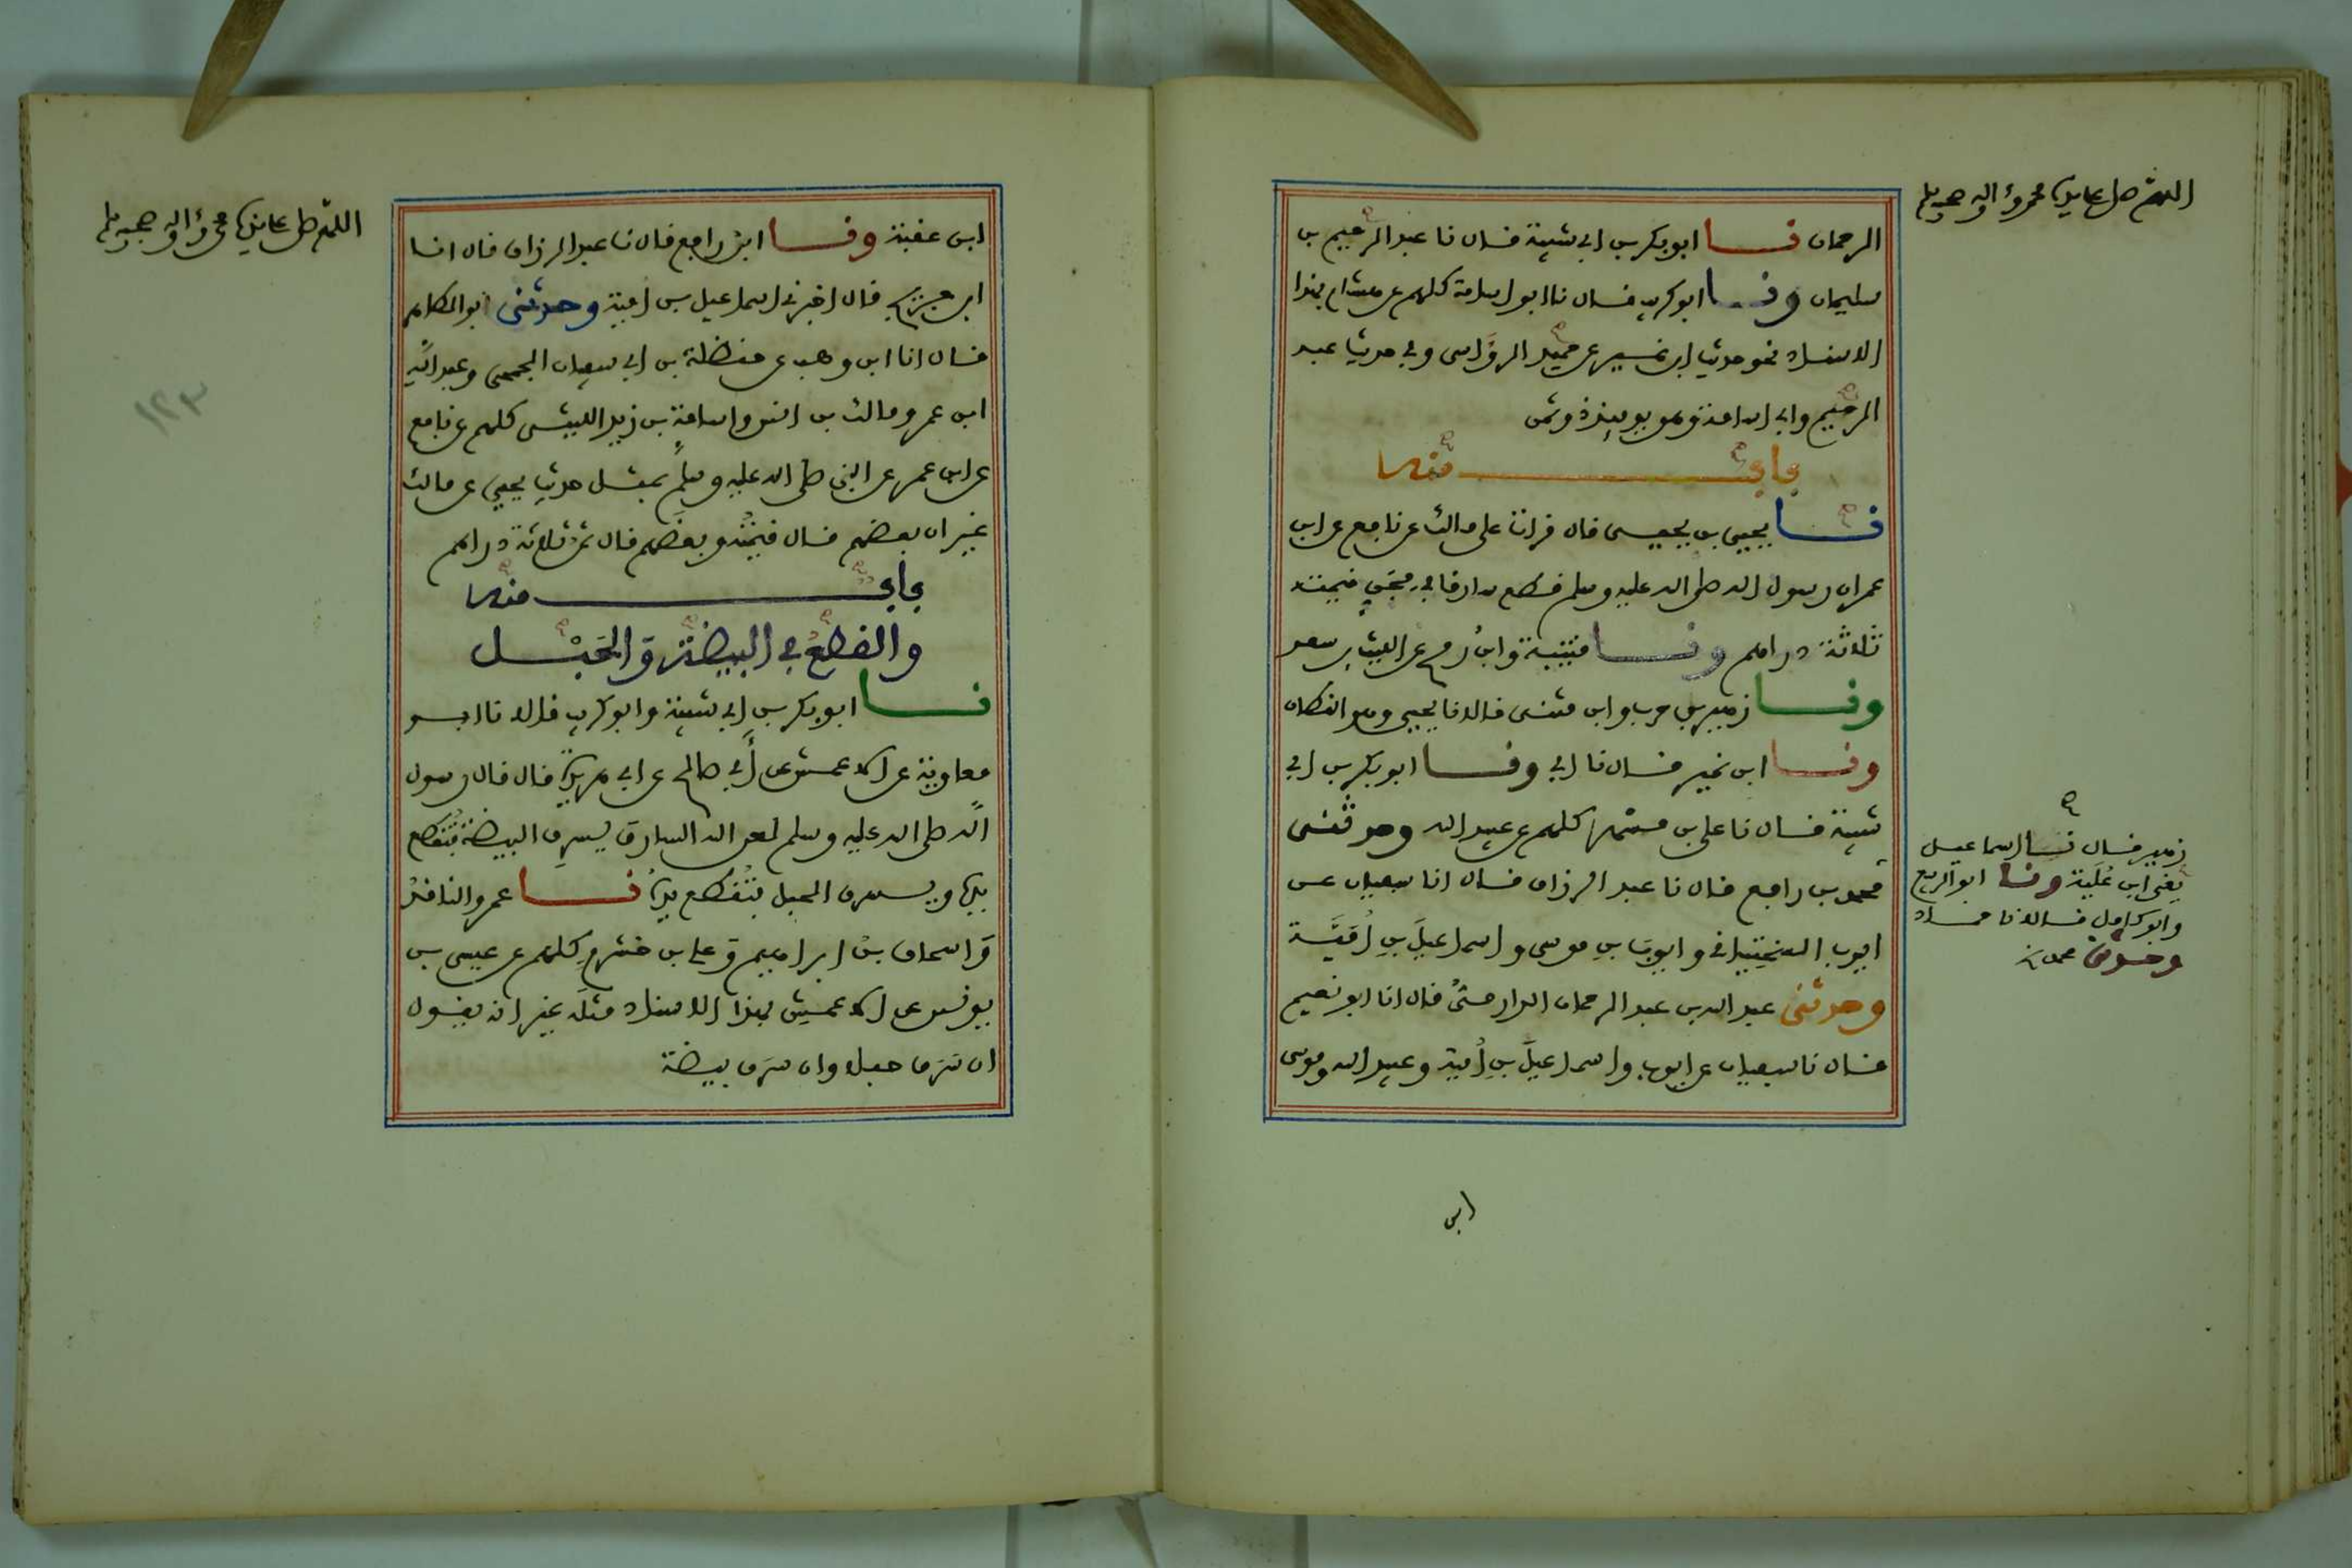 اللهم صل على سيدنا محمد وآله وصحبه وسلم
الرحمان نا ابو بكر بن ابي شيبة قال نا عبد الرحيم بن
سليمان ونا ابو كريب قال نا ابو اسامة كلهم عن هشام بهذا
الاسناد نحو حديث ابن نمير عن حميد الرؤاسي وفي حديث عبد
الرحيم وابي اسامة وهو يوميذ ذو ثمن
باب منه
نا يحيى بن يحيى قال قرات على مالك عن نافع عن ابن
عمر ان رسول الله صلى الله عليه وسلم قطع سارقا في مجن قيمته
ثلاثة دراهم ونا قتيبة وابن رمح عن الليث بن سعد
ونا زهير بن حرب وابن مثنى قالا نا يحيى وهو القطان
ونا ابن نمير قال نا ابي ونا ابو بكر بن ابي
شيبة قال نا علي بن مسهر كلهم عن عبيد الله وحدثني
زهير قال نا اسماعيل
يعني ابن علية ونا ابو الربيع
وابو كامل قالا نا حماد
وحدثني محمد بن
محمد بن رافع قال نا عبد الرزاق قال انا سفيان عن
ايوب السختياني وايوب بن موسى واسماعيل بن امية
وحدثني عبد الله بن عبد الرحمان الدارمي قال انا ابو نعيم
قال نا سفيان عن ايوب واسماعيل بن امية وعبيد الله وموسى
ابن
اللهم صل على سيدنا محمد وآله وصحبه وسلم
ابن عقبة ونا ابن رافع قال نا عبد الرزاق قال انا
ابن جريج قال اخبرني اسماعيل بن امية وحدثني ابو الطاهر
قال انا ابن وهب عن حنظلة بن ابي سفيان الجمحي وعبد الله
ابن عمر ومالك بن انس واسامة بن زيد الليثي كلهم عن نافع
عن ابن عمر عن النبي صلى الله عليه وسلم بمثل حديث يحيى عن مالك
غير ان بعضهم قال قيمته وبعضهم قال ثمنه ثلاثة دراهم
١٢٣
باب منه
والقطع في البيضة والحبل
نا ابو بكر بن ابي شيبة وابو كريب قالا نا ابو
معاوية عن الاعمش عن أبي صالح عن ابي هريرة قال قال رسول
الله صلى الله عليه وسلم لعن الله السارق يسرق البيضة فتقطع
يده ويسرق الحبل فتقطع يده نا عمرو الناقد
واسحاق بن ابراهيم وعلي بن خشرم كلهم عن عيسى بن
يونس عن الاعمش بهذا الاسناد مثله غير انه يقول
ان سرق حبلا وان سرق بيضة